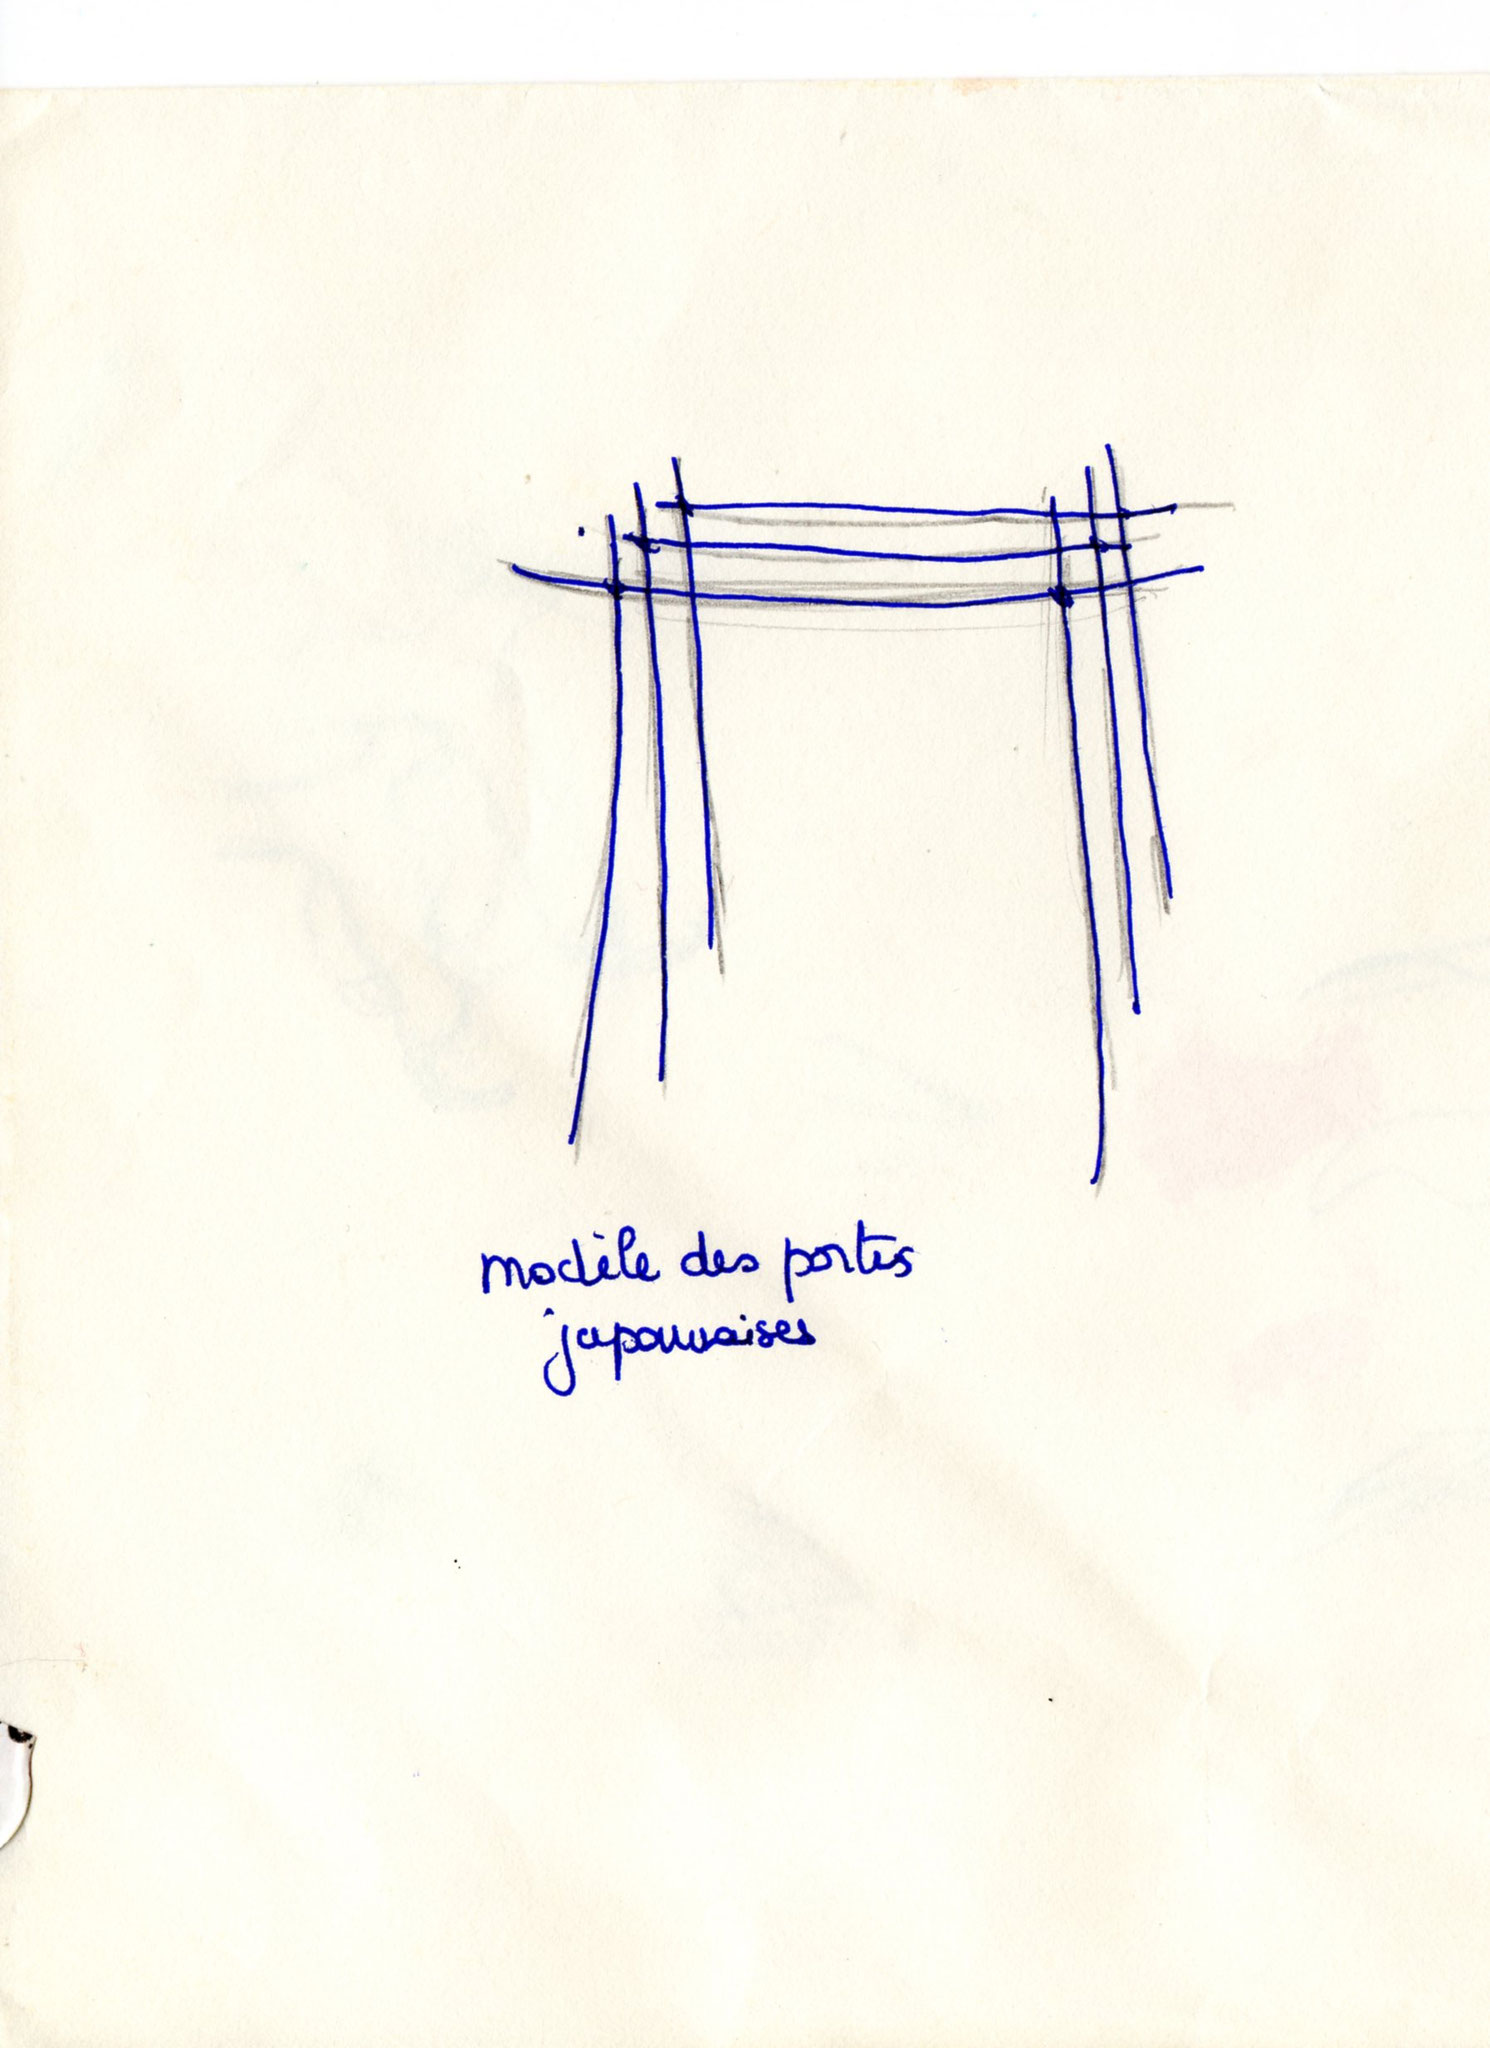 modèle des portes
japonnaises